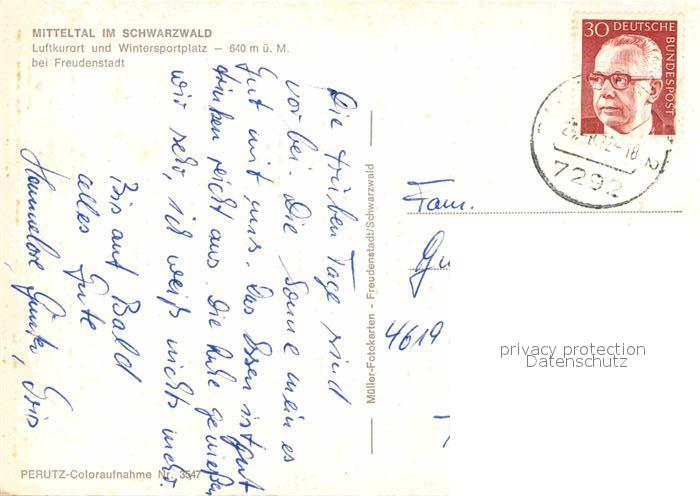 MITTELTAL IM SCHWARZWALD
Luftkurort und Wintersportplatz – 640 m ü. M.
bei Freudenstadt
Die trüben Tage sind
vorbei. Die Sonne mein es
gut mit uns. Das Essen ist gut
trinken reicht aus. Die Ruhe genießen
wir sehr, ich weiß nichts mehr.
Bis auf Bald
alles Gute
Hannelore,
PERUTZ-Coloraufnahme Nr. 3547
Müller-Fotokarten - Freudenstadt/Schwarzwald
30 DEUTSCHE
BUNDESPOST
7292
Fam.
4619
privacy protection
Datenschutz